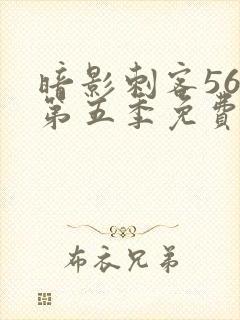 暗影刺客56
第五季免費
布衣兄弟